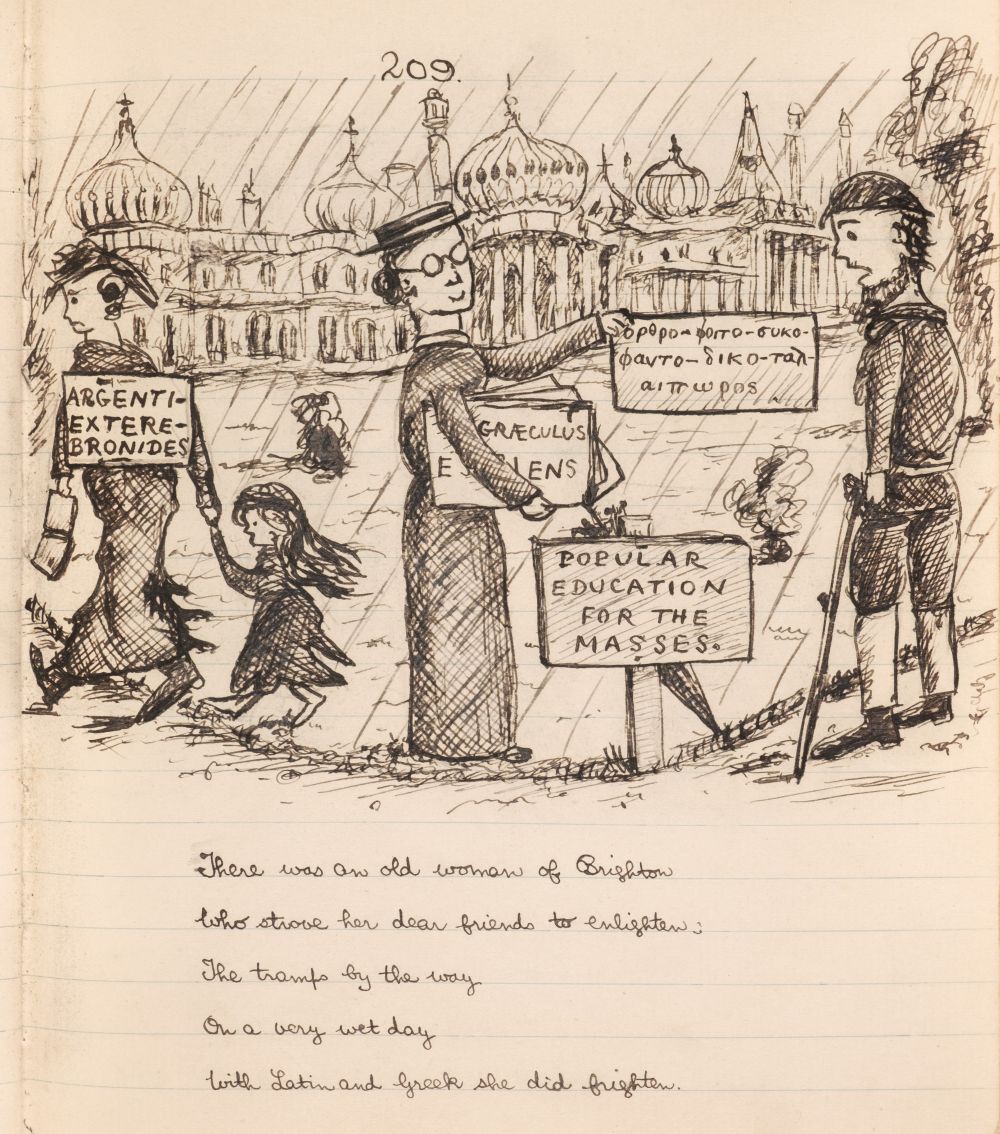 209.
ARGENTI-
EXTERE-
BRONIDES
ορθρο-φοιτο-συκο-
φαντο-δικο-ταλ-
αιπωρος
GRÆCULUS
E LENS
POPULAR
EDUCATION
FOR THE
MASSES.
There was an old woman of Brighton
Who strove her dear friends to enlighten;
The tramps by the way
On a very wet day
With Latin and Greek she did frighten.